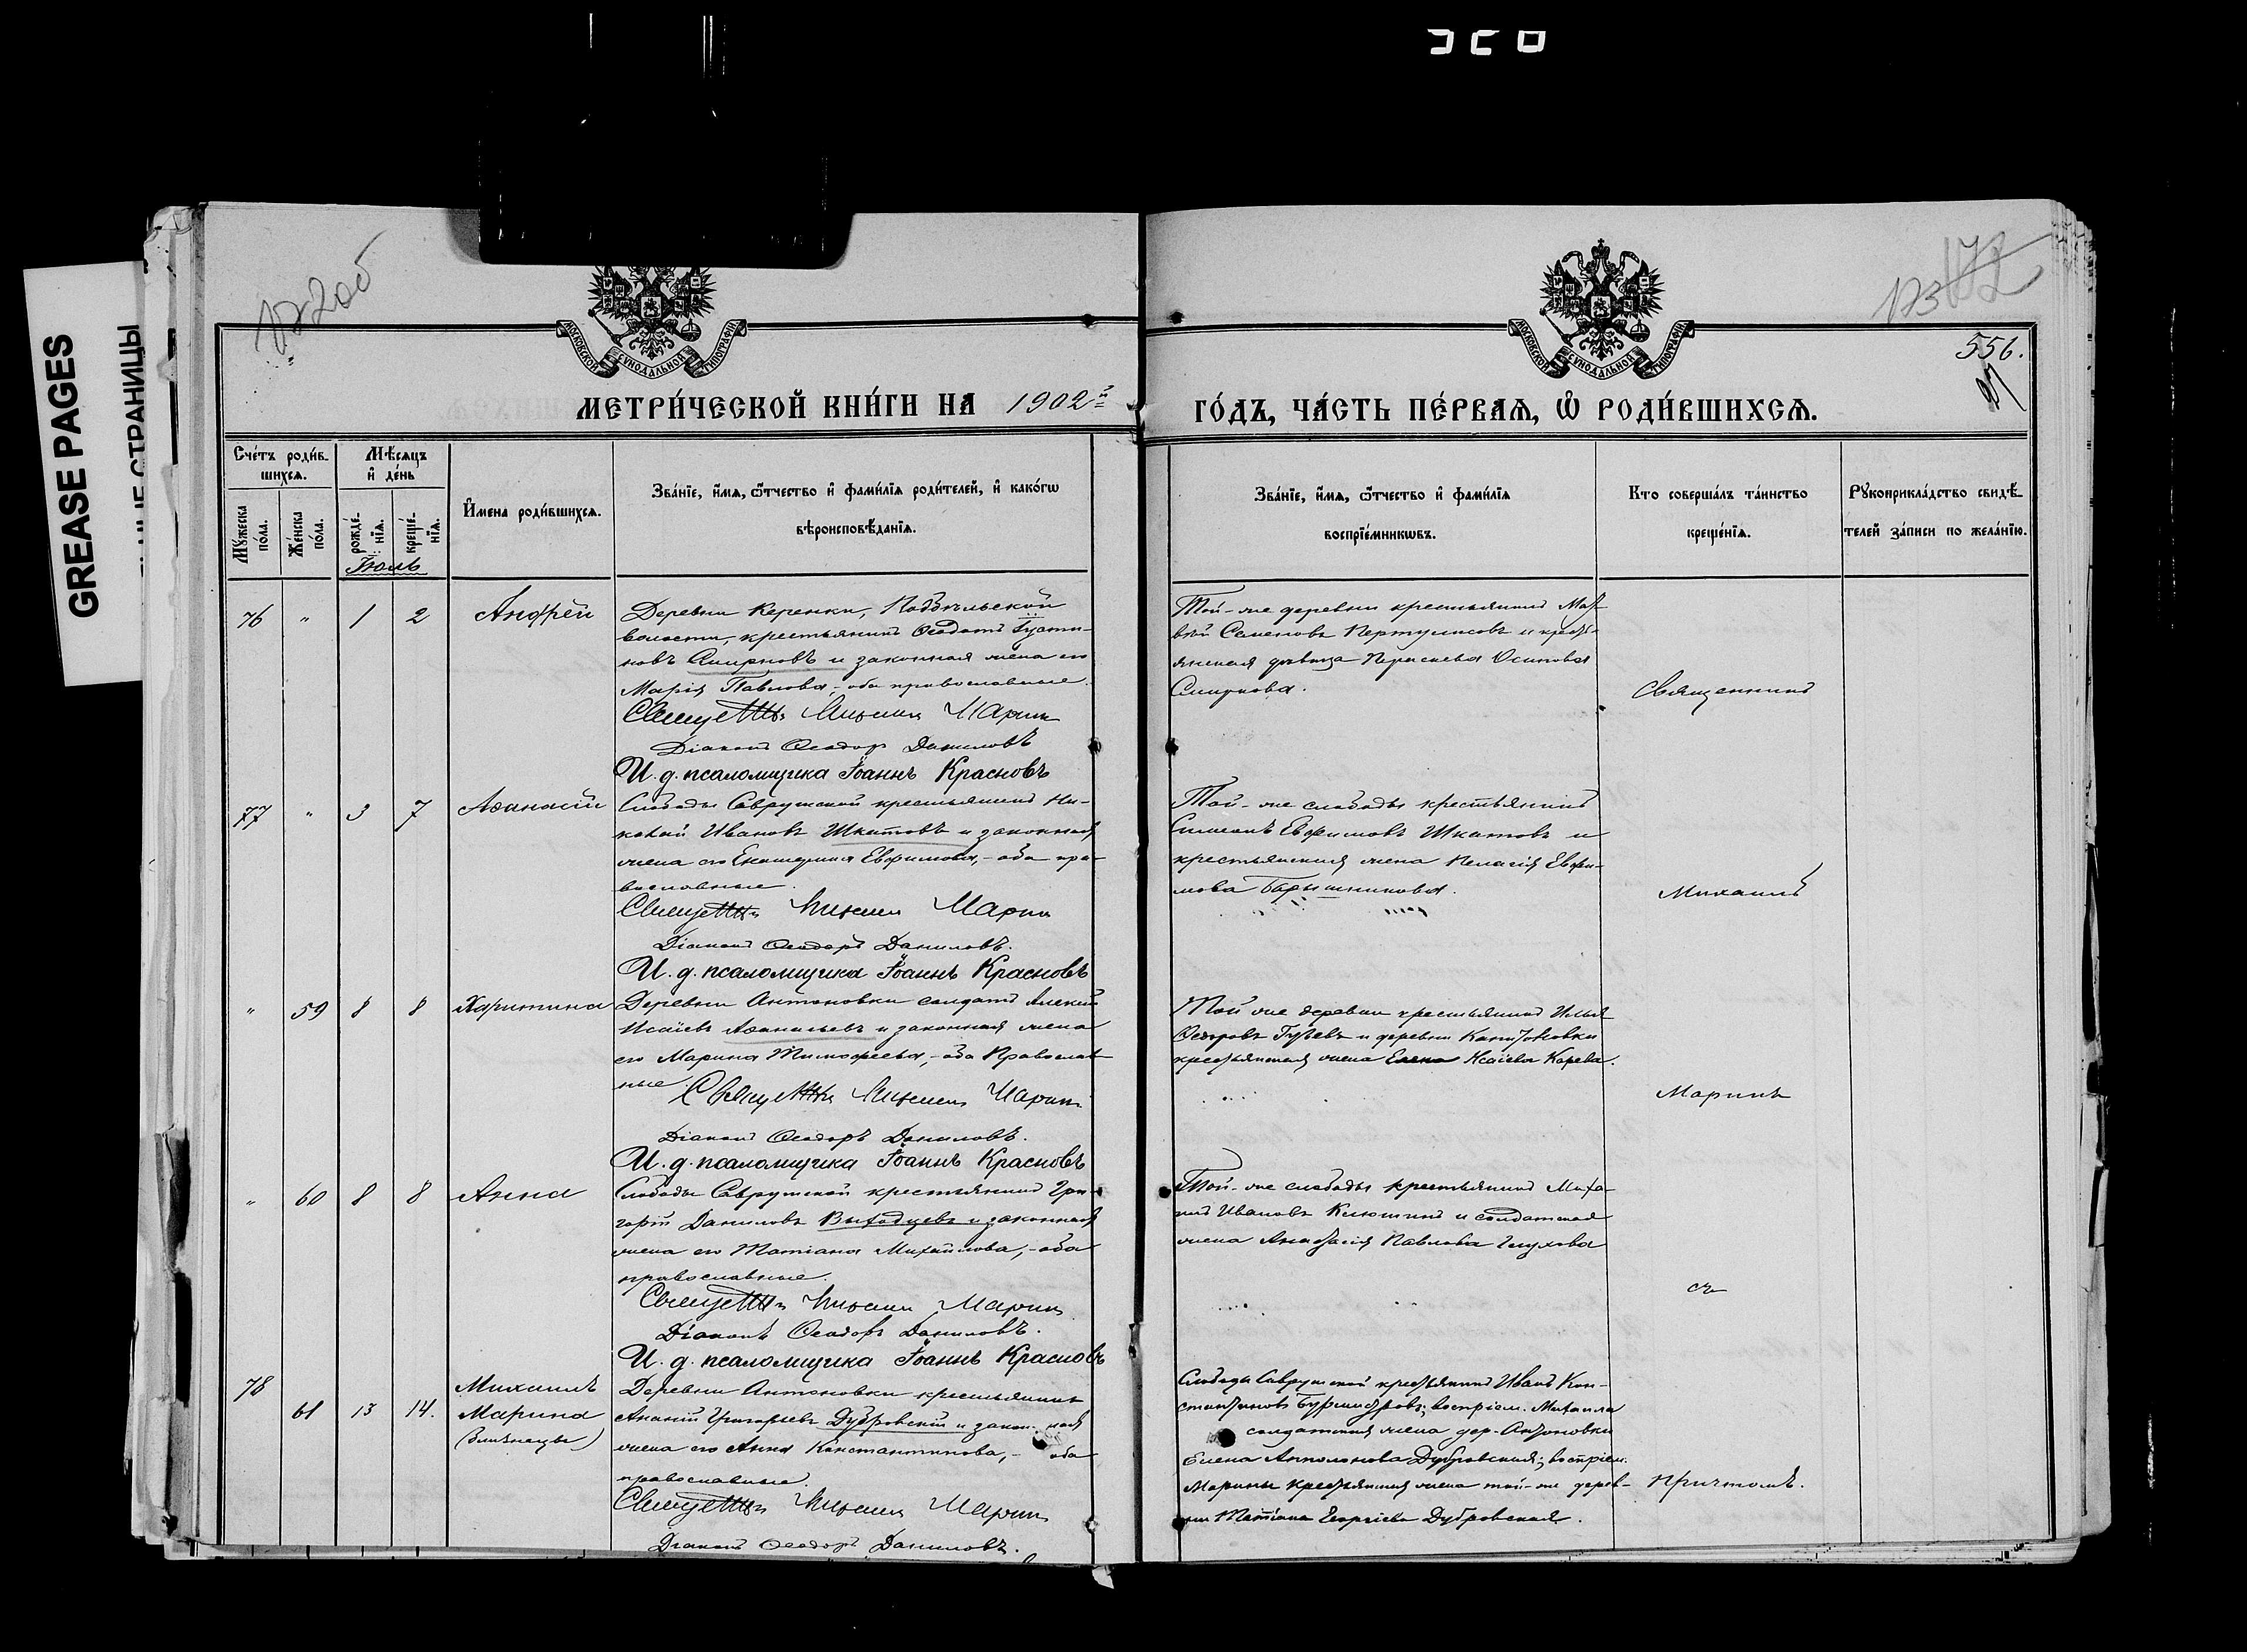 GREASE PAGES
СТРАНИЦЫ
172об
173
172
556.
МОСКОВСКОЙ СУНОДАЛЬНОЙ ТИПОГРАФІИ
МОСКОВСКОЙ СУНОДАЛЬНОЙ ТИПОГРАФІИ
МЕТРИ́ЧЕСКОЙ КНИ́ГИ НА 1902й
ГО́ДЪ, ЧА́СТЬ ПЕ́РВАѦ, Ѡ҆ РОДИ́ВШИХСѦ.
Сче́тъ роди́вшихсѧ.
Мꙋ́жеска по́ла.
Же́нска по́ла.
Мѣ́сѧцъ и҆ де́нь
рожде́нїѧ.
креще́нїѧ.
Іюль
И҆́мена роди́вшихсѧ.
Зва́нїе, и҆́мѧ, ѻ҆́тчество и҆ фами́лїѧ роди́телей, и҆ како́гѡ
вѣроисповѣ́данїѧ.
Зва́нїе, и҆́мѧ, ѻ҆́тчество и҆ фами́лїѧ
воспрїе́мникѡвъ.
Кто соверша́лъ та́инство
креще́нїѧ.
Рꙋкоприкла́дство свидѣ́-
телей за́писи по жела́нїю.
76 " 1 2 Андрей
Деревни Керенки, Подбѣльской
волости, крестьянинъ Ѳеодотъ Іусти-
новъ Смирновъ и законная жена его
Марія Павлова, - оба православные
Священникъ Михаилъ Маринъ
Діаконъ Ѳеодоръ Даниловъ
И. д. псаломщика Іоаннъ Красновъ
Той-же деревни крестьянинъ Мат-
вѣй Семеновъ и кресть-
янская дѣвица Осипова
Смирнова.
Священникъ
77 " 3 7 Аѳанасій
Слободы Саврушской крестьянинъ Ни-
колай Ивановъ Шкатовъ и законная
жена его Екатерина Евфимова, - оба пра-
вославные.
Священникъ Михаилъ Маринъ
Діаконъ Ѳеодоръ Даниловъ.
И. д. псаломщика Іоаннъ Красновъ
Той-же слободы крестьянинъ
Симеонъ Евфимовъ Шкатовъ и
крестьянская жена Пелагія Евфи-
мова Барышникова.
Михаилъ
" 59 8 8 Харитина
Деревни Антоновки солдатъ Алексій
Исаіевъ Аѳанасьевъ и законная жена
его Марина Тимофеева, - оба Православ-
ные.
Священникъ Михаилъ Маринъ
Діаконъ Ѳеодоръ Даниловъ.
И. д. псаломщика Іоаннъ Красновъ
Той же деревни крестьянинъ Илья
Ѳедоровъ и деревни
крестьянская жена Елена Исаіева Карева.
Маринъ
" 60 8 8 Анна
Слободы Саврушской крестьянинъ Гри-
горій Даниловъ Выходцевъ и законная
жена его Татіана Михайлова, - оба
православные.
Священникъ Михаилъ Маринъ
Діаконъ Ѳеодоръ Даниловъ.
И. д. псаломщика Іоаннъ Красновъ
Той-же слободы крестьянинъ Миха-
илъ Ивановъ Клюшинъ и солдатская
жена Анастасія Павлова Глухова
съ
78 61 13 14. Михаилъ
Марина
(близнецы)
Деревни Антоновки крестьянинъ
Ананій Григорьевъ Дубровскій и законная
жена его Анна Константинова, - оба
православные.
Священникъ Михаилъ Маринъ
Діаконъ Ѳеодоръ Даниловъ.
Слободы Саврушской крестьянинъ Иванъ Кон-
стантиновъ Бурмистровъ; воспріем. Михаила
солдатская жена дер. Антоновки
Елена Дубровская; воспріем.
Марины крестьянская жена той-же дерев-
ни Татіана Георгіева Дубровская.
причтомъ.